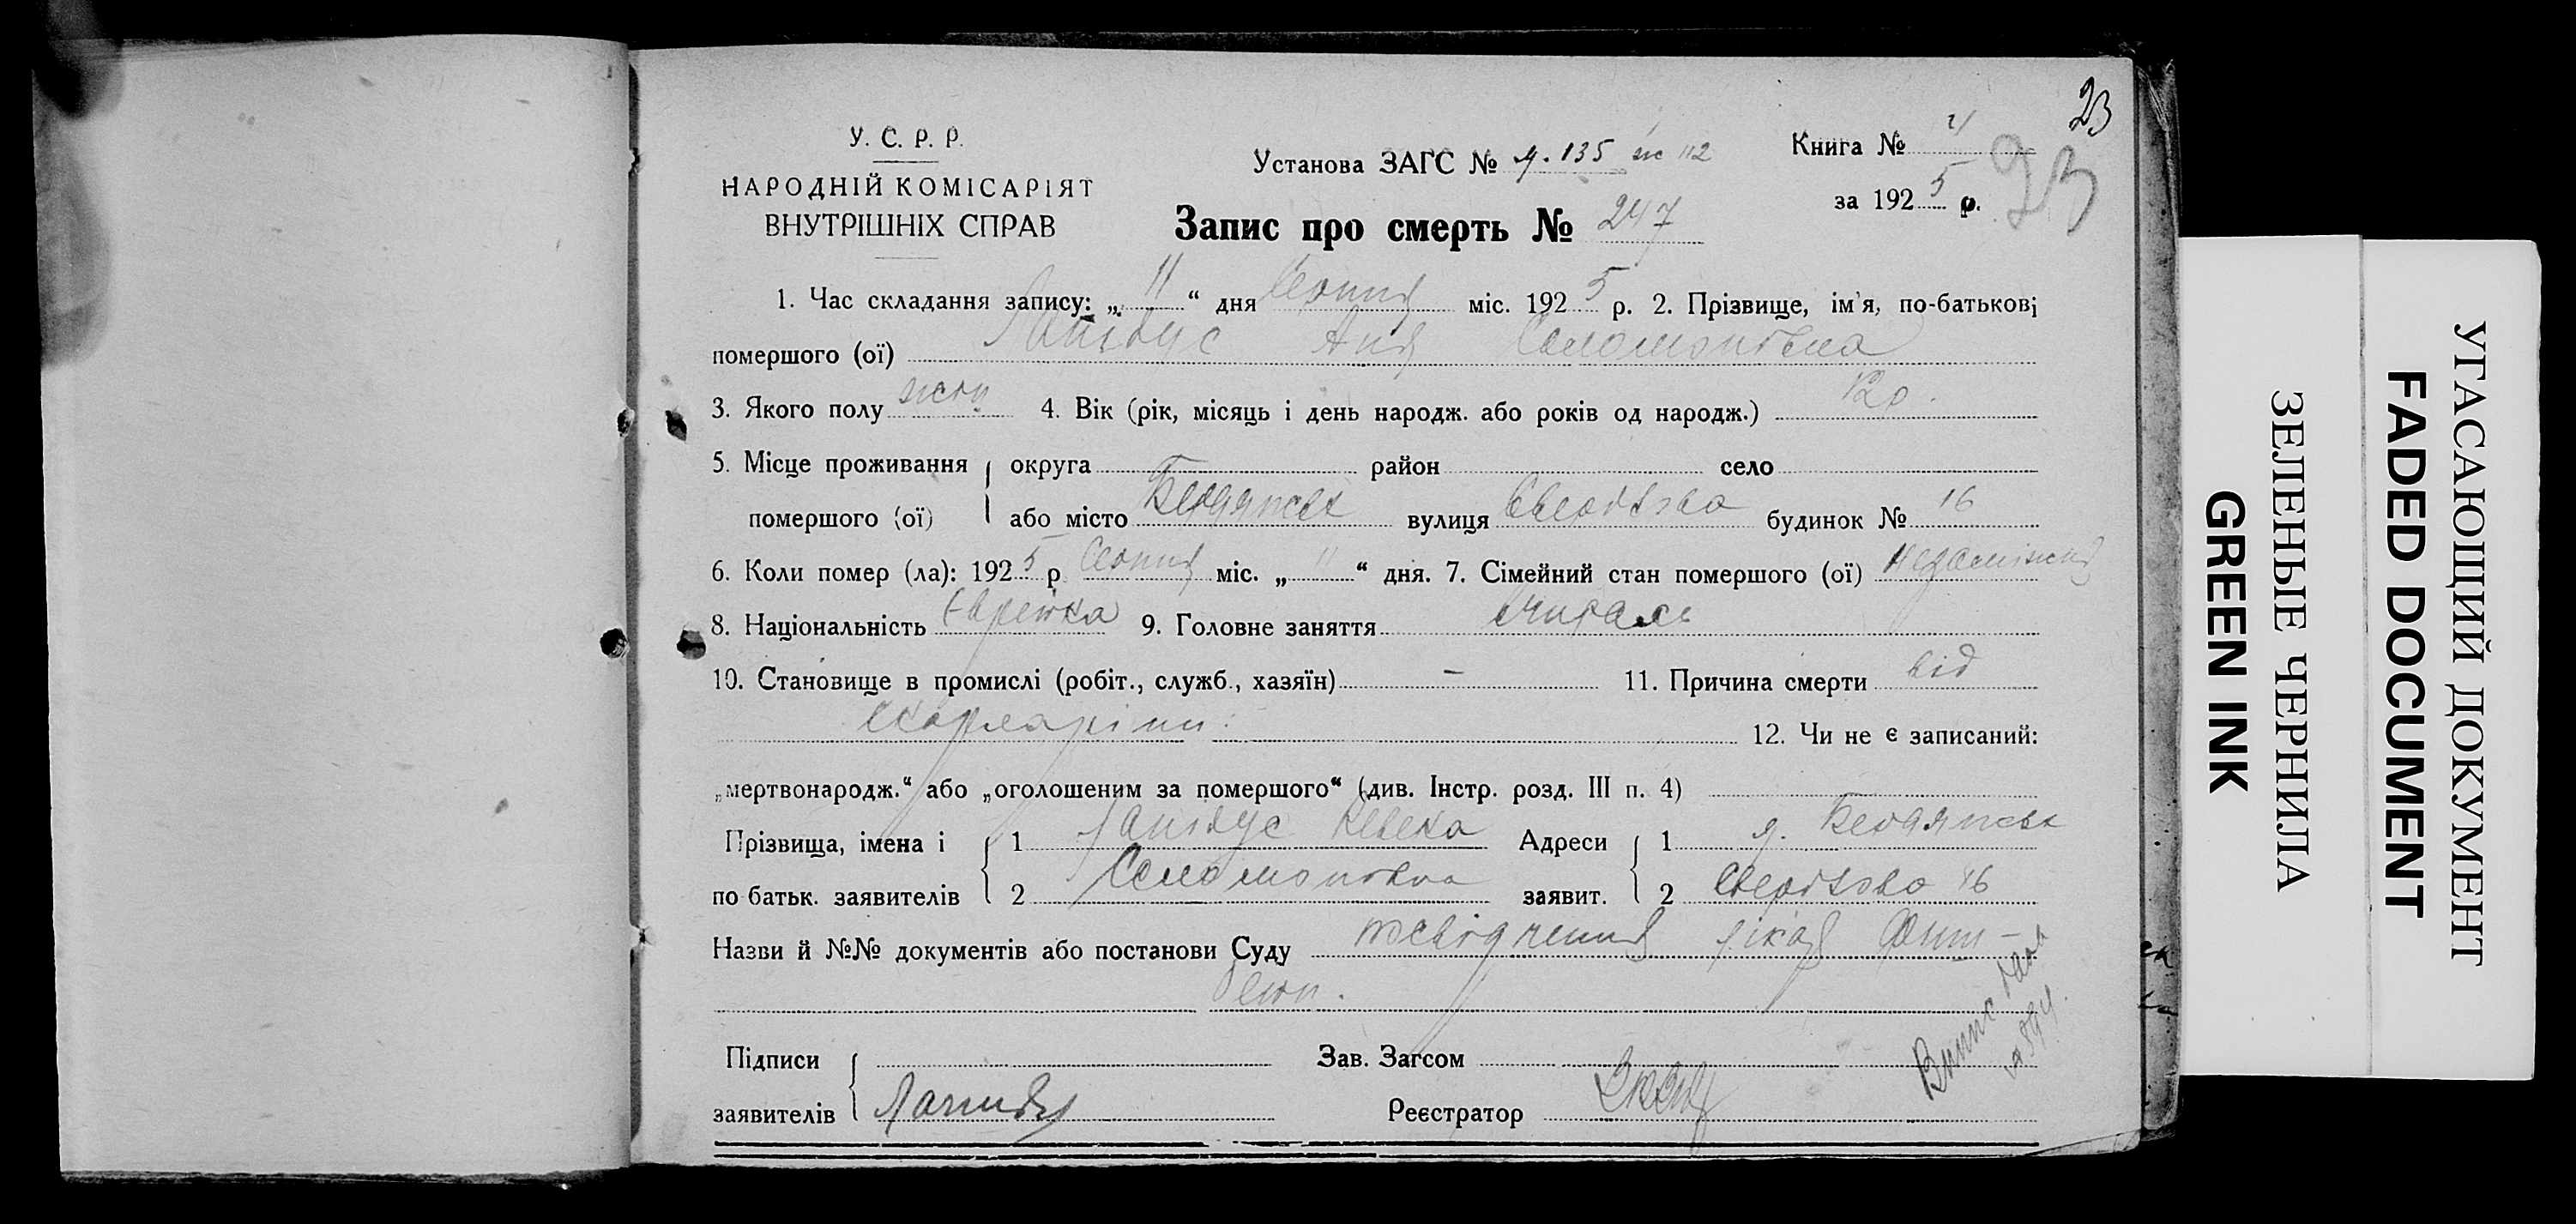 23
У. С. Р. Р.
НАРОДНІЙ КОМІСАРІЯТ
ВНУТРІШНІХ СПРАВ
Установа ЗАГС № ч. 135
Книга № 4
за 1925 р.
23
Запис про смерть № 247
1. Час складання запису: „11“ дня Серпня міс. 1925 р. 2. Прізвище, ім'я, по-батькові
помершого (ої) Лапідус Аня Соломонівна
3. Якого полу жоноч 4. Вік (рік, місяць і день народж. або років од народж.) 12 р.
5. Місце проживання округа район село
помершого (ої) або місто Бердянськ вулиця будинок № 16
6. Коли помер (ла): 1925 р Серпня міс. „11“ дня. 7. Сімейний стан помершого (ої)
8. Національність Єврейка 9. Головне заняття училась
10. Становище в промислі (робіт., служб., хазяїн) – 11. Причина смерти від
скарлатіни. 12. Чи не є записаний:
„мертвонародж.“ або „оголошеним за помершого“ (див. Інстр. розд. III п. 4)
Прізвища, імена і 1 Лапідус Ревека Адреси 1 Бердянськ
по батьк. заявителів 2 Соломонівна заявит. 2 16
Назви й №№ документів або постанови Суду посвідчення лікаря
Підписи Зав. Загсом
заявителів Лапидус Реєстратор
УГАСАЮЩИЙ ДОКУМЕНТ
FADED DOCUMENT
ЗЕЛЕНЫЕ ЧЕРНИЛА
GREEN INK